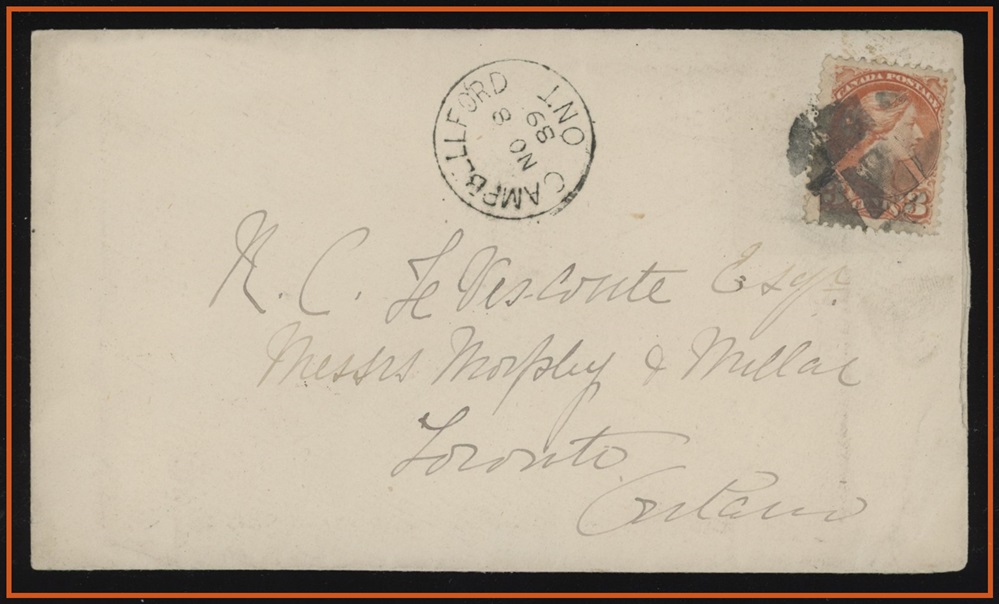 CAMPBELLFORD ONT
NO 8
89
CANADA POSTAGE
3
R. C. LeVesconte Esqr.
Messrs Morphy & Millar
Toronto
Ontario